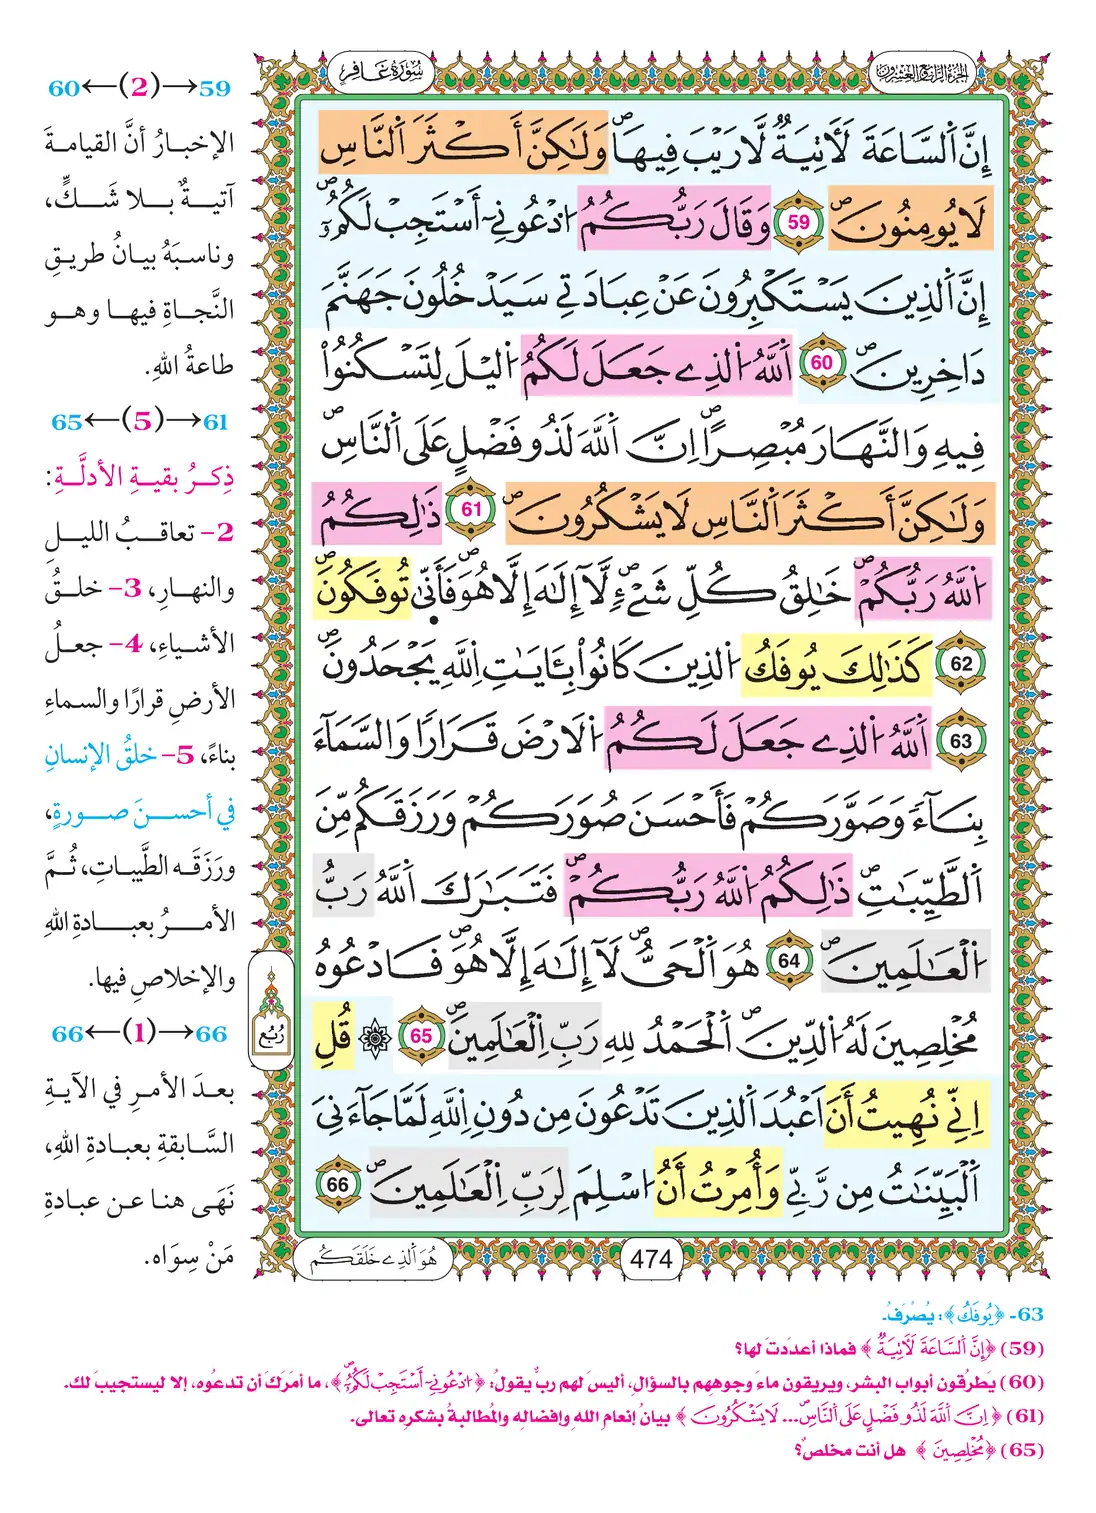 الجزء الرابع والعشرون
سُورَةُ غَافِرٍ
إِنَّ اَلسَّاعَةَ لَأٓتِيَةٌ لَّا رَيْبَ فِيهَاۖ وَلَٰكِنَّ أَكْثَرَ اَلنَّاسِ
لَا يُومِنُونَۖ 59 وَقَالَ رَبُّكُمُ اُدْعُونِيٓ أَسْتَجِبْ لَكُمُۥٓۖ
إِنَّ اَلذِينَ يَسْتَكْبِرُونَ عَنْ عِبَادَتِي سَيَدْخُلُونَ جَهَنَّمَ
دَاخِرِينَۖ 60 اَللَّهُ اُلذِي جَعَلَ لَكُمُ اُليْلَ لِتَسْكُنُواْ
فِيهِ وَالنَّهَارَ مُبْصِراًۖ اِنَّ اَللَّهَ لَذُو فَضْلٍ عَلَى اَلنَّاسِۖ
وَلَٰكِنَّ أَكْثَرَ اَلنَّاسِ لَا يَشْكُرُونَۖ 61 ذَٰلِكُمُ
اُللَّهُ رَبُّكُمْۖ خَٰلِقُ كُلِّ شَےْءٖۖ لَّآ إِلَٰهَ إِلَّا هُوَۖ فَأَنّ۪ىٰ تُوفَكُونَۖ
62 كَذَٰلِكَ يُوفَكُ اُلذِينَ كَانُواْ بِـَٔايَٰتِ اِللَّهِ يَجْحَدُونَۖ
63 اَللَّهُ اُلذِي جَعَلَ لَكُمُ اُلَارْضَ قَرَاراً وَالسَّمَآءَ
بِنَآءٗ وَصَوَّرَكُمْ فَأَحْسَنَ صُوَرَكُمْ وَرَزَقَكُم مِّنَ
اَلطَّيِّبَٰتِۖ ذَٰلِكُمُ اُللَّهُ رَبُّكُمْۖ فَتَبَٰرَكَ اَللَّهُ رَبُّ
اُلْعَٰلَمِينَۖ 64 هُوَ اَلْحَيُّۖ لَآ إِلَٰهَ إِلَّا هُوَۖ فَادْعُوهُ
مُخْلِصِينَ لَهُ اُلدِّينَۖ اَلْحَمْدُ لِلهِ رَبِّ اِلْعَٰلَمِينَۖ 65 ۞ قُلِ
اِنِّي نُهِيتُ أَنَ اَعْبُدَ اَلذِينَ تَدْعُونَ مِن دُونِ اِللَّهِ لَمَّا جَآءَنِيَ
اَلْبَيِّنَٰتُ مِن رَّبِّي وَأُمِرْتُ أَنُ اسْلِمَ لِرَبِّ اِلْعَٰلَمِينَۖ 66
هُوَ اَلذِي خَلَقَكُم
474
رُبُع
59→(2)←60
الإخبـارُ أنَّ القيامـةَ
آتيـةٌ بـلا شَـكٍّ،
وناسبَهُ بيـانُ طريـقِ
النَّجـاةِ فيهـا وهـو
طاعةُ اللهِ.
61→(5)←65
ذِكـرُ بقيـةِ الأدلَّـةِ:
2- تعاقـبُ الليـلِ
والنهـارِ، 3- خلـقُ
الأشـياءِ، 4- جعـلُ
الأرضِ قرارًا والسماءِ
بناءً، 5- خلقُ الإنسانِ
في أحسـنَ صـورةٍ،
ورَزَقَـه الطَّيبـاتِ، ثُـمَّ
الأمـرُ بعبـادةِ اللهِ
والإخلاصِ فيها.
66→(1)←66
بعـدَ الأمـرِ في الآيـةِ
السَّابقـةِ بعبـادةِ اللهِ،
نَهَـى هنـا عـن عبـادةِ
مَنْ سِوَاه.
63- ﴿يُوفَكُ﴾: يُصْرَفُ.
(59) ﴿إِنَّ اَلسَّاعَةَ لَأٓتِيَةٌ﴾ فماذا أعددتَ لها؟
(60) يَطرُقون أبوابَ البشر، ويريقون ماءَ وجوههم بالسؤالِ، أليسَ لهم ربٌّ يقولُ: ﴿اُدْعُونِيٓ أَسْتَجِبْ لَكُمُۥٓۖ﴾، ما أمرَكَ أن تدعُوه، إلا ليستجيبَ لك.
(61) ﴿اِنَّ اَللَّهَ لَذُو فَضْلٍ عَلَى اَلنَّاسِۖ ... لَا يَشْكُرُونَ﴾ بيانُ إنعامِ اللهِ وإفضالِه والمُطالبةُ بشكرِه تعالى.
(65) ﴿مُخْلِصِينَ﴾ هل أنت مخلصٌ؟